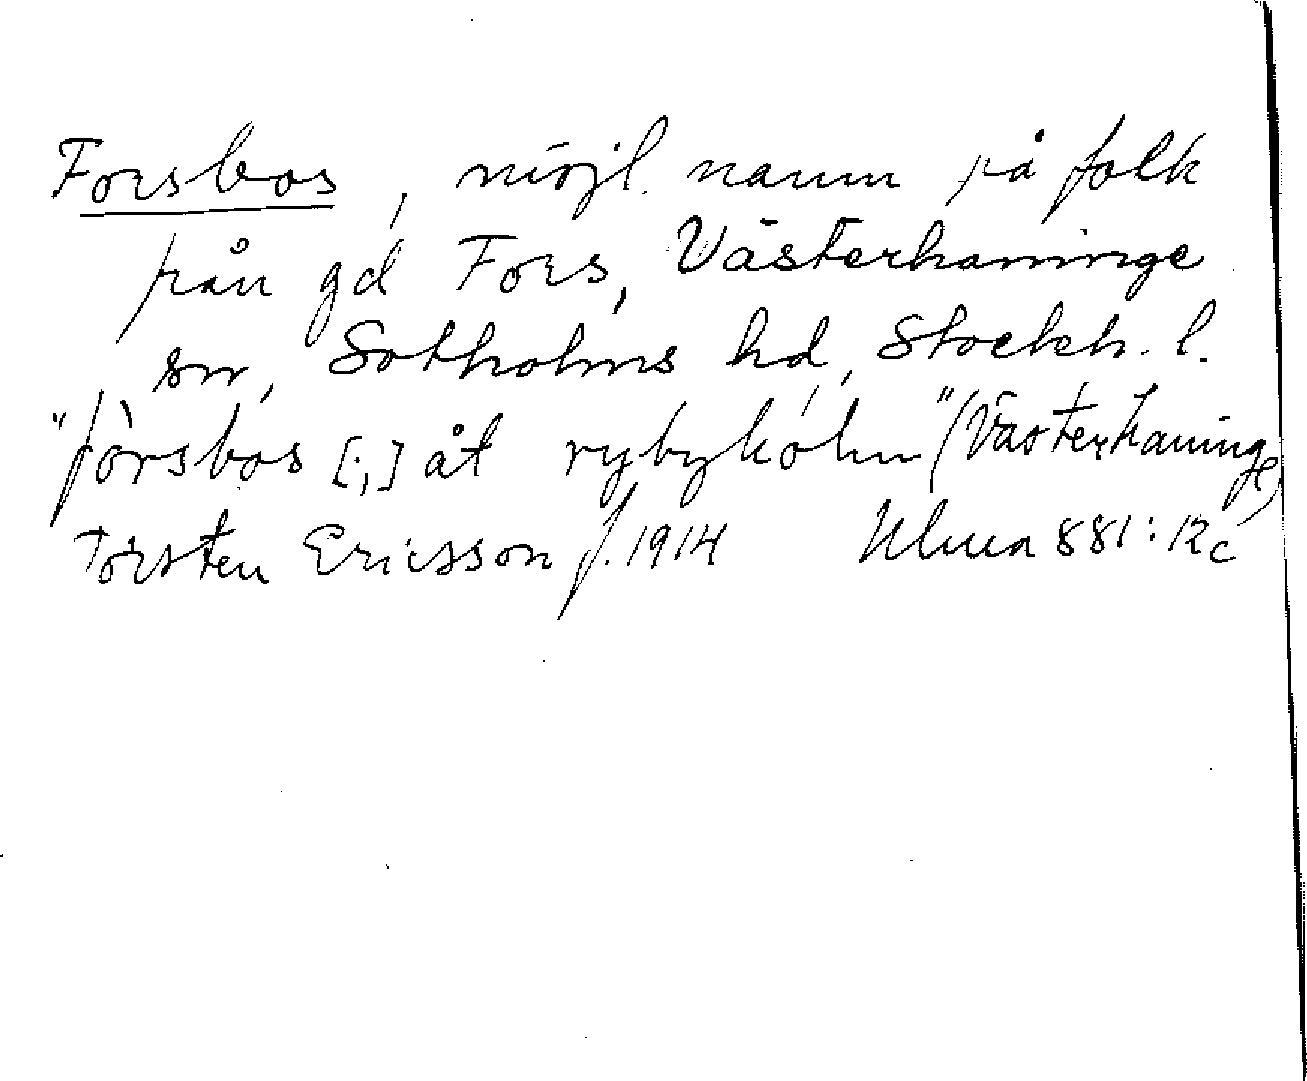 Forsbos, möjl. namn på folk
från gd Fors, Västerhaninge
sn, Sotholms hd, Stockh. l.
"fòrsbos [;] åt rybyhólm" (Västerhaninge)
Torsten Ericsson f. 1914 Ulma 881:12c